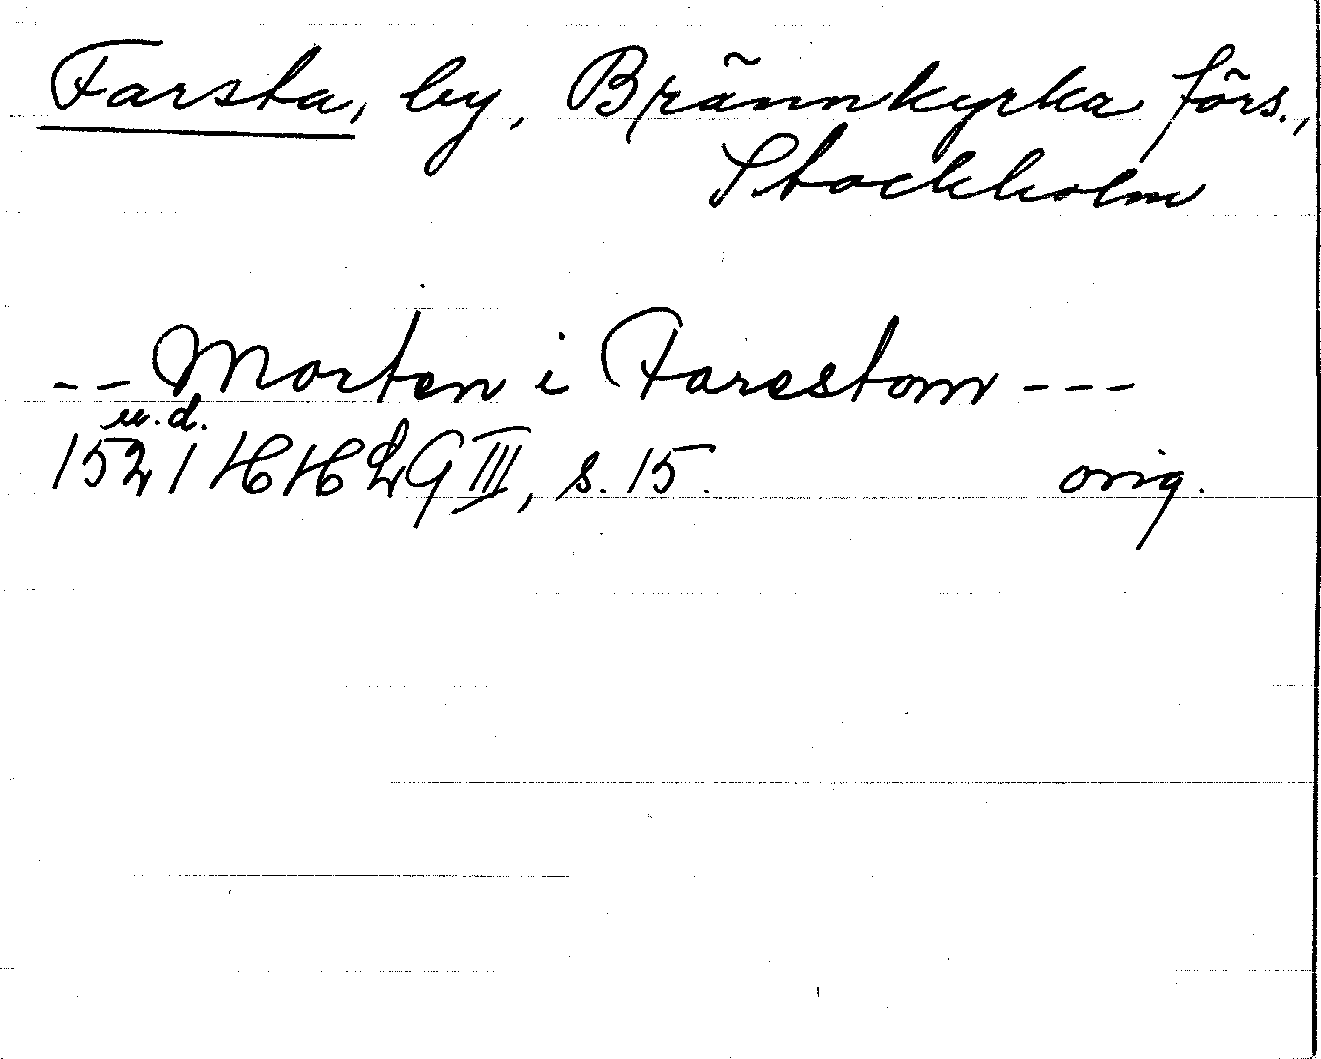 Farsta, by, Brännkyrka förs.,
Stockholm
-- Morten i Farestom ---
u.d.
1521 HH2G III, s. 15. orig.